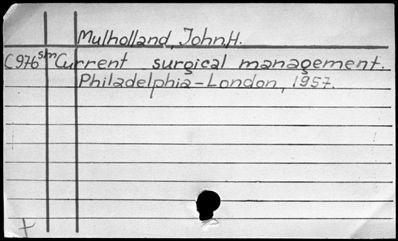 Mulholland, John H.
C976sm Current surgical management.
Philadelphia-London, 1957.